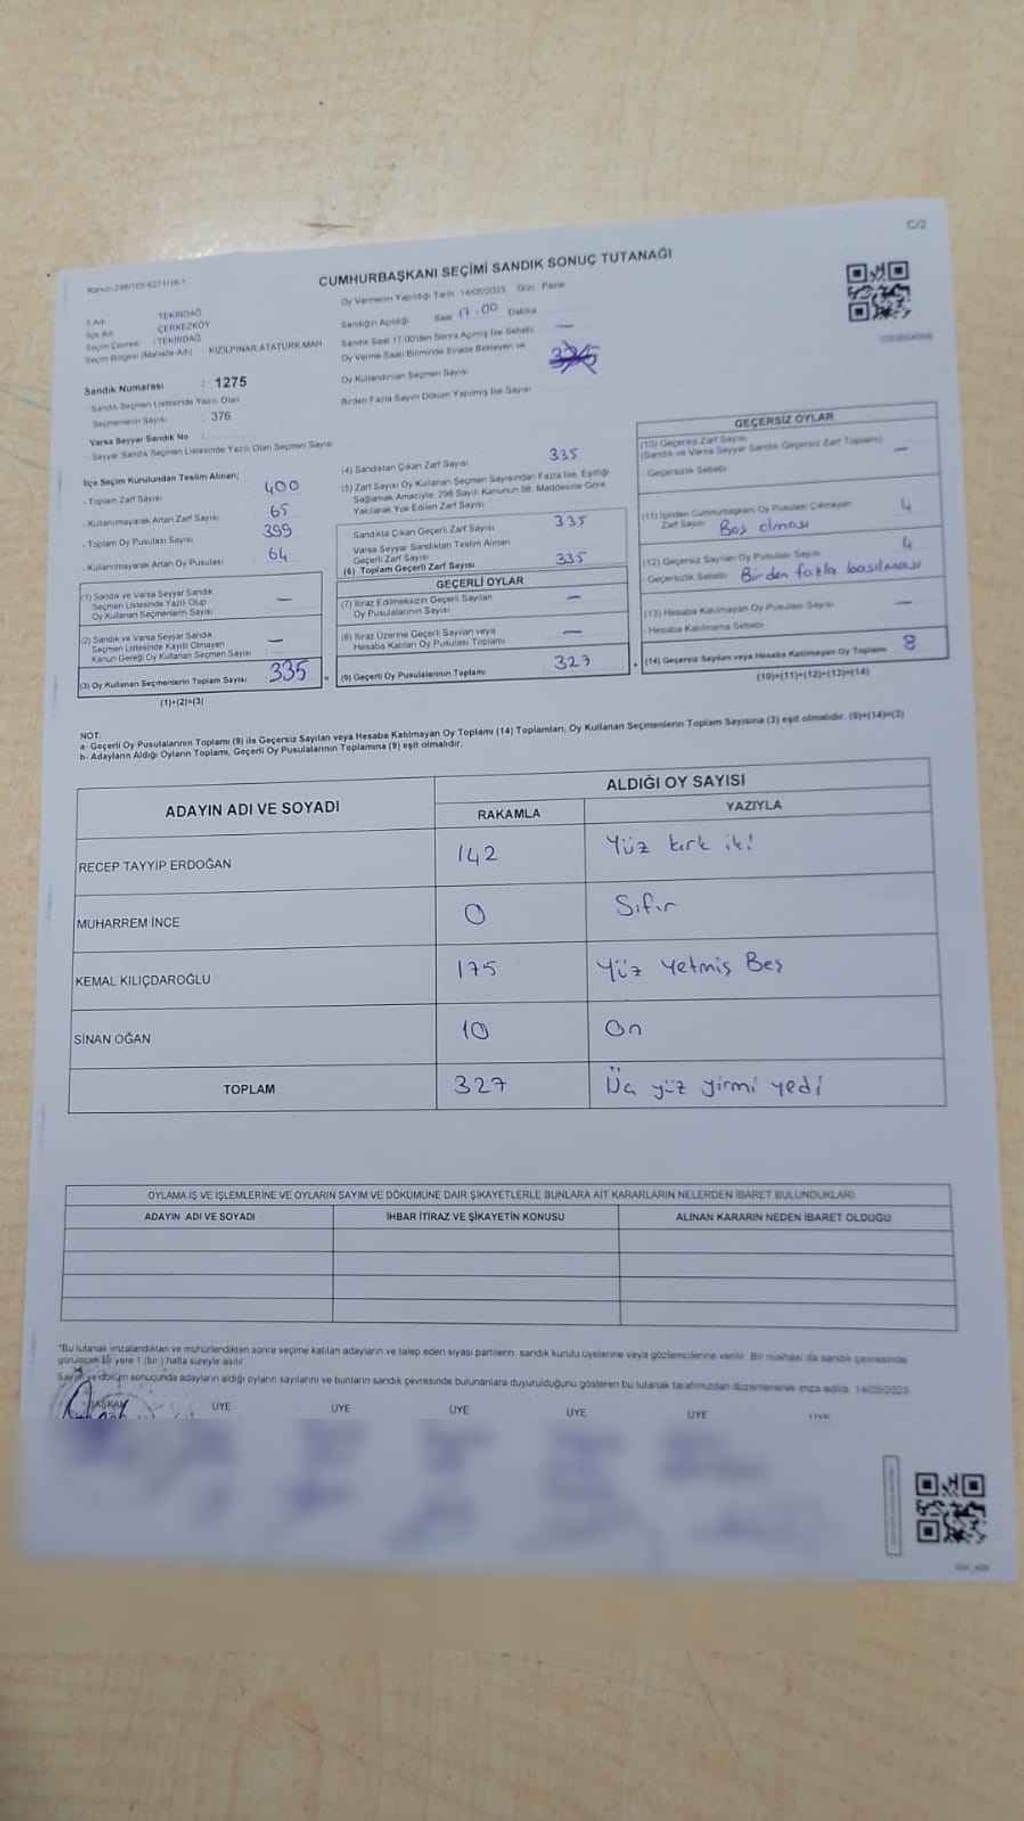 C/2
CUMHURBAŞKANI SEÇİMİ SANDIK SONUÇ TUTANAĞI
Oy Vermenin Yapıldığı Tarih 14/05/2023 Gün Pazar
İl Adı TEKİRDAĞ
İlçe Adı ÇERKEZKÖY
Seçim Çevresi : TEKİRDAĞ
Seçim Bölgesi (Mahalle Adı) KIZILPINAR ATATÜRK MAH
Sandığın Açıldığı Saat 17.00 Dakika
Sandık Saat 17.00'den Sonra Açılmış İse Sebebi —
Oy Verme Saati Bitiminde Sırada Bekleyen ve
Oy Kullandırılan Seçmen Sayısı
Birden Fazla Sayım Döküm Yapılmış İse Sayısı
Sandık Numarası : 1275
Sandık Seçmen Listesinde Yazılı Olan
Seçmenlerin Sayısı : 376
Varsa Seyyar Sandık No
Seyyar Sandık Seçmen Listesinde Yazılı Olan Seçmen Sayısı
İlçe Seçim Kurulundan Teslim Alınan;
- Toplam Zarf Sayısı 400
- Kullanılmayarak Artan Zarf Sayısı 65
- Toplam Oy Pusulası Sayısı 399
- Kullanılmayarak Artan Oy Pusulası 64
(1) Sandık ve Varsa Seyyar Sandık
Seçmen Listesinde Yazılı Olup
Oy Kullanan Seçmenlerin Sayısı —
(2) Sandık ve Varsa Seyyar Sandık
Seçmen Listesinde Kayıtlı Olmayan
Kanun Gereği Oy Kullanan Seçmen Sayısı —
(3) Oy Kullanan Seçmenlerin Toplam Sayısı 335
(1)+(2)=(3)
(4) Sandıktan Çıkan Zarf Sayısı 335
(5) Zarf Sayısı Oy Kullanan Seçmen Sayısından Fazla İse, Eşitliği
Sağlamak Amacıyla, 298 Sayılı Kanunun 98. Maddesine Göre
Yakılarak Yok Edilen Zarf Sayısı
Sandıkta Çıkan Geçerli Zarf Sayısı 335
Varsa Seyyar Sandıktan Teslim Alınan
Geçerli Zarf Sayısı
(6) Toplam Geçerli Zarf Sayısı 335
GEÇERLİ OYLAR
(7) İtiraz Edilmeksizin Geçerli Sayılan
Oy Pusulalarının Sayısı —
(8) İtiraz Üzerine Geçerli Sayılan veya
Hesaba Katılan Oy Pusulası Toplamı —
(9) Geçerli Oy Pusulalarının Toplamı 327
GEÇERSİZ OYLAR
(10) Geçersiz Zarf Sayısı
(Sandık ve Varsa Seyyar Sandık Geçersiz Zarf Toplamı) —
Geçersizlik Sebebi
(11) İçinden Cumhurbaşkanı Oy Pusulası Çıkmayan
Zarf Sayısı Boş olması 4
(12) Geçersiz Sayılan Oy Pusulası Sayısı 4
Geçersizlik Sebebi Birden fazla basılması
(13) Hesaba Katılmayan Oy Pusulası Sayısı —
Hesaba Katılmama Sebebi
(14) Geçersiz Sayılan veya Hesaba Katılmayan Oy Toplamı 8
(10)+(11)+(12)+(13)=(14)
NOT:
a- Geçerli Oy Pusulalarının Toplamı (9) ile Geçersiz Sayılan veya Hesaba Katılmayan Oy Toplamı (14) Toplamları, Oy Kullanan Seçmenlerin Toplam Sayısına (3) eşit olmalıdır. (9)+(14)=(3)
b- Adayların Aldığı Oyların Toplamı, Geçerli Oy Pusulalarının Toplamına (9) eşit olmalıdır.
ADAYIN ADI VE SOYADI ALDIĞI OY SAYISI
RAKAMLA YAZIYLA
RECEP TAYYİP ERDOĞAN 142 Yüz kırk iki
MUHARREM İNCE 0 Sıfır
KEMAL KILIÇDAROĞLU 175 Yüz Yetmiş Beş
SİNAN OĞAN 10 On
TOPLAM 327 Üç yüz yirmi yedi
OYLAMA İŞ VE İŞLEMLERİNE VE OYLARIN SAYIM VE DÖKÜMÜNE DAİR ŞİKAYETLERLE BUNLARA AİT KARARLARIN NELERDEN İBARET BULUNDUKLARI
ADAYIN ADI VE SOYADI İHBAR İTİRAZ VE ŞİKAYETİN KONUSU ALINAN KARARIN NEDEN İBARET OLDUĞU
*Bu tutanak imzalandıktan ve mühürlendikten sonra seçime katılan adayların ve talep eden siyasi partilerin sandık kurulu üyelerine veya gözlemcilerine verilir. Bir nüshası da sandık çevresinde
görülecek bir yere 1 (bir) hafta süreyle asılır.
Sayım ve döküm sonucunda adayların aldığı oyların sayılarını ve bunların sandık çevresinde bulunanlara duyurulduğunu gösteren bu tutanak tarafımızdan düzenlenerek imza edildi. 14/05/2023
BAŞKAN ÜYE ÜYE ÜYE ÜYE ÜYE ÜYE